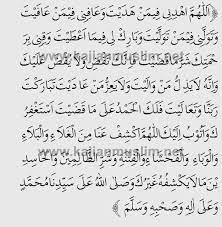 ﴿ اَللّٰهُمَّ اهْدِنِيْ فِيْمَنْ هَدَيْتَ وَعَافِنِيْ فِيْمَنْ عَافَيْتَ
وَتَوَلَّنِيْ فِيْمَنْ تَوَلَّيْتَ وَبَارِكْ لِيْ فِيْمَا اَعْطَيْتَ وَقِنِيْ بِرَ
حْمَتِكَ شَرَّمَا قَضَيْتَ فَاِنَّكَ تَقْضِيْ وَلَا يُقْضٰى عَلَيْكَ
وَاِنَّهُ لَايَذِلُّ مَنْ وَالَيْتَ وَلَايَعِزُّ مَنْ عَادَيْتَ تَبَارَكْتَ
رَبَّنَا وَتَعَالَيْتَ فَلَكَ الْحَمْدُ عَلٰى مَا قَضَيْتَ اَسْتَغْفِرُ
كَ وَاَتُوْبُ اِلَيْكَ اَللّٰهُمَّ اكْشِفْ عَنَّا مِنَ الْغَلَاءِ وَالْبَلَاءِ
وَالْوَبَاءِ وَالْفَحْشَاءِ وَالْفِتْنَةِ وَشَرِّ الظَّالِمِيْنَ وَالْحَاسِدِ
يْنَ مَالَا يَكْشِفُهُ غَيْرُكَ وَصَلَّى اللهُ عَلٰى سَيِّدِنَا مُحَمَّدٍ
وَعَلٰى اٰلِهِ وَصَحْبِهِ وَسَلَّمَ ﴾
www.kajianmuslim.net
www.kajianmuslim.net